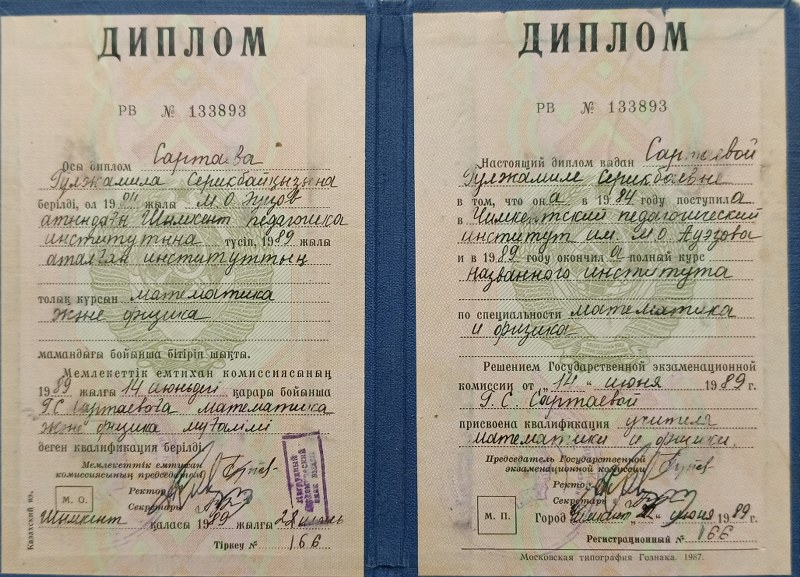 ДИПЛОМ
РВ № 133893
Осы диплом Сартаева
Гүлжамила Серикбайқызына
берілді, ол 19 жылы М.О.Әуезов
атындағы Шимкент педагогика
институтына түсіп, 1989 жылы
аталған институттың
толық курсын математика
және физика
мамандығы бойынша бітіріп шықты.
Мемлекеттік емтихан комиссиясының
1989 жылғы 14 июньдегі қарары бойынша
Г.С Сартаевога математика
және физика мұғалімі
деген квалификация берілді
Мемлекеттік емтихан
комиссиясының председателі
Ректор
Секретарь
М. О.
Шимкент қаласы 1989 жылғы 22 июнь
Тіркеу № 166
Казахский яз.
ДИПЛОМ
РВ № 133893
Настоящий диплом выдан Сартаевой
Гулжамиле Серикбаевне
в том, что она в 1984 году поступила
в Чимкентский педагогический
институт им. М О Ауэзова
и в 1989 году окончила полный курс
названного института
по специальности математика
и физика
Решением Государственной экзаменационной
комиссии от „14“ июня 1989 г.
Г. С. Сартаевой
присвоена квалификация учителя
математики и физики.
Председатель Государственной
экзаменационной комиссии
Ректор
Секретарь
М. П.
Город Чимкент „22“ июня 1989 г.
Регистрационный № 166
Московская типография Гознака. 1987.